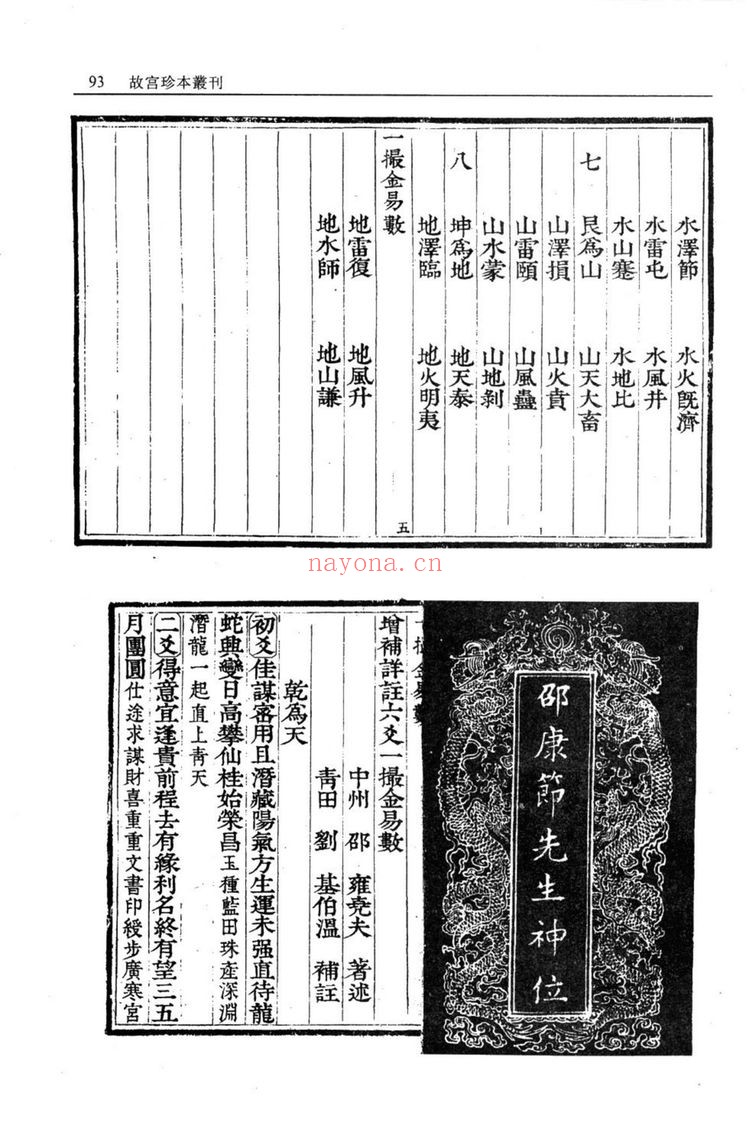 93 故宫珍本叢刊
水澤節 水火旣濟
水雷屯 水風井
水山蹇 水地比
七 艮爲山 山天大畜
山澤損 山火賁
山雷頤 山風蠱
山水蒙 山地剝
八 坤爲地 地天泰
地澤臨 地火明夷
一撮金易數 五
地雷復 地風升
地水師 地山謙
nayona.cn
邵康節先生神位
增補詳註六爻一撮金易數
中州 邵 雍堯夫 著述
靑田 劉 基伯溫 補註
乾爲天
初爻佳謀密用且潛藏陽氣方生運未强直待龍
蛇興變日高攀仙桂始榮昌玉種藍田珠產深淵
潛龍一起直上靑天
二爻得意宜逢貴前程去有緣利名終有望三五
月團圓仕途求謀財喜重重文書印綬步廣寒宮